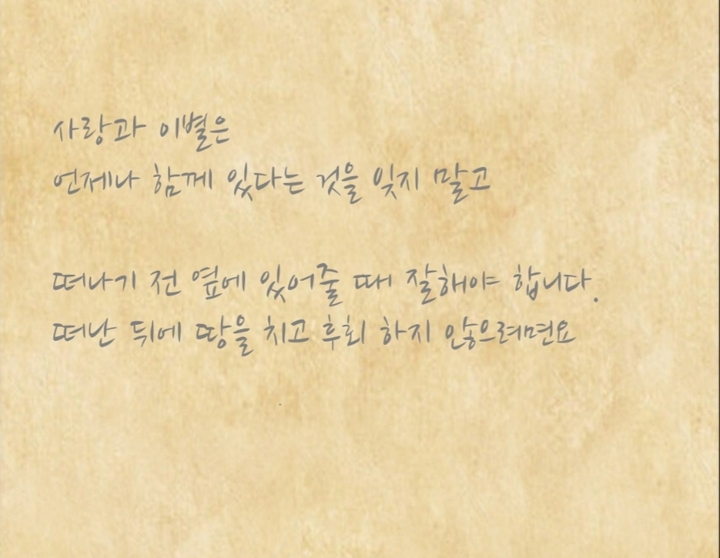 사랑과 이별은
언제나 함께 있다는 것을 잊지 말고
떠나기 전 옆에 있어줄 때 잘해야 합니다.
떠난 뒤에 땅을 치고 후회 하지 않으려면요